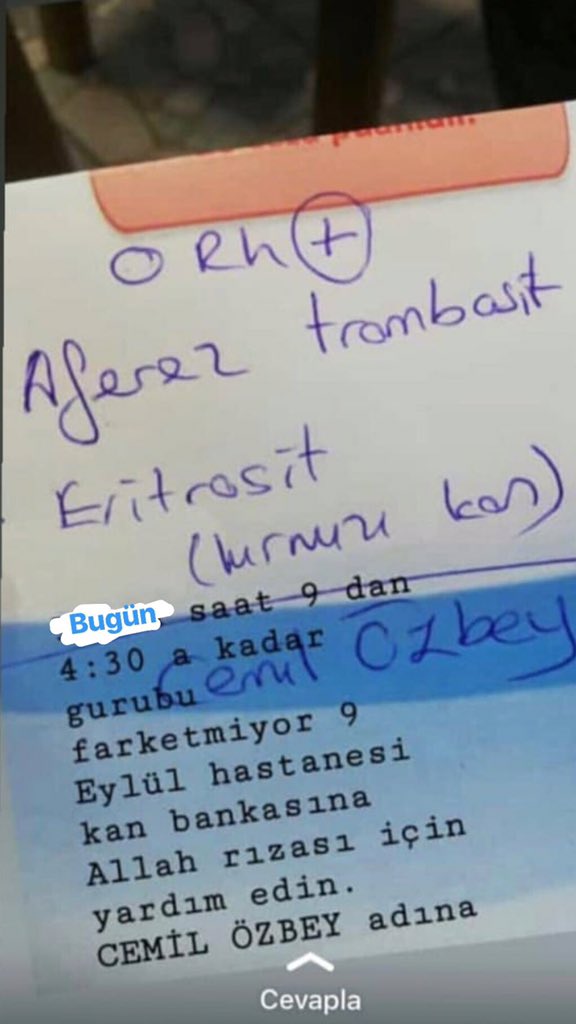 O Rh +
Aferez trombosit
Eritrosit
(kırmızı kan)
Bugün saat 9 dan
4:30 a kadar
Cemil Özbey
gurubu
farketmiyor 9
Eylül hastanesi
kan bankasına
Allah rızası için
yardım edin.
CEMİL ÖZBEY adına
Cevapla